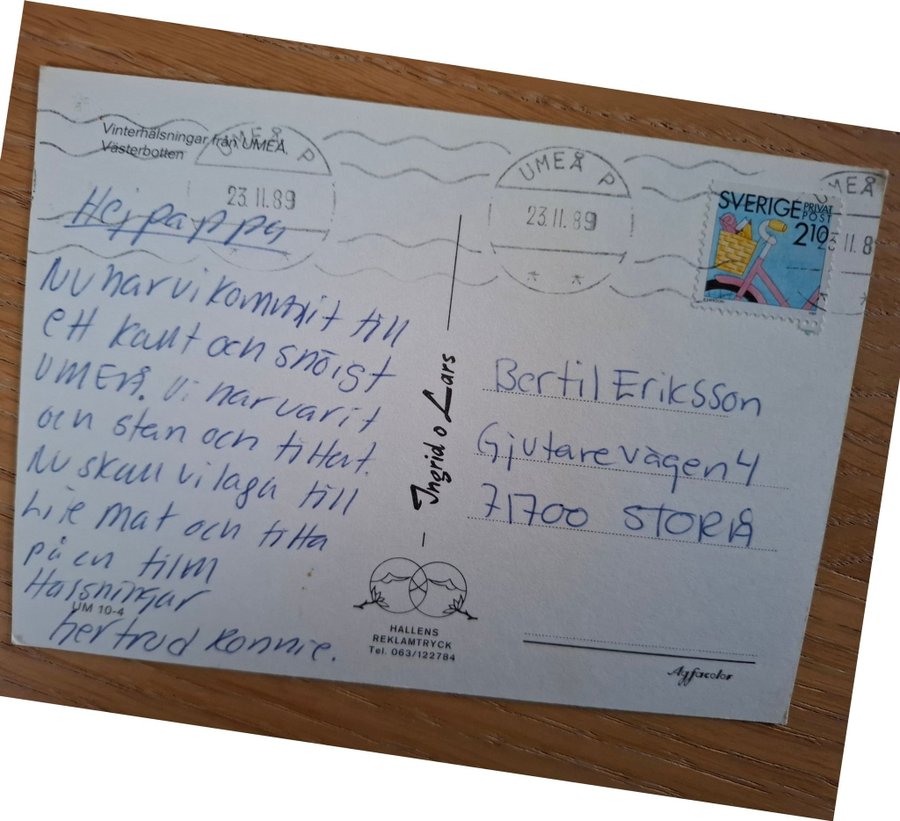 Vinterhälsningar från UMEÅ.
Västerbotten
UMEÅ P
23.11.89
UMEÅ P
23.11.89
UMEÅ
23.11.8
SVERIGE PRIVAT
POST
210
Hej pappa
Nu har vi kommit till
ett kallt och snöigt
UMEÅ. Vi har varit
och stan och tittat.
Nu skall vi laga till
Lite mat och titta
på en film
Hälsningar
Gertrud Ronnie.
UM 10-4
Ingrid o Lars
HALLENS
REKLAMTRYCK
Tel. 063/122784
Bertil Eriksson
Gjutarevägen 4
71700 STORÅ
Agfacolor